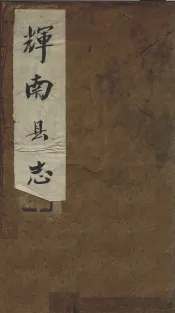 輝南县志